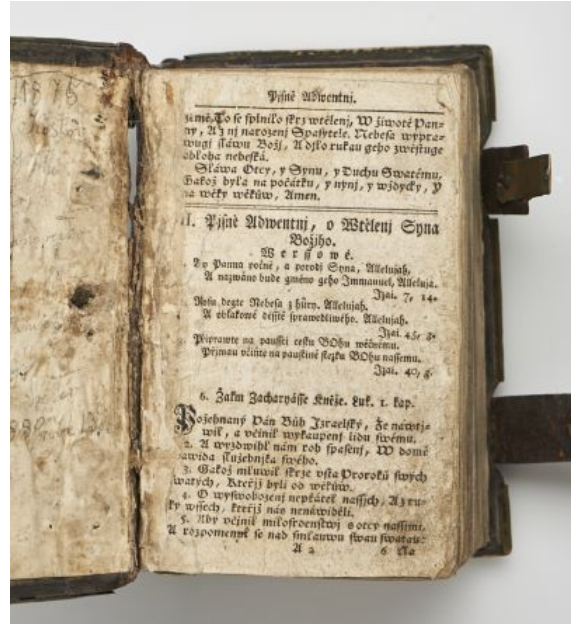 1875
Pjsně Adwentnj.
země. To se splnilo skrz wtělenj, W životě Pan-
ny, A z nj narozenj Spasytele. Nebesa wypra-
wugj sláwu Božj, A djlo rukau geho zwěstuge
obloha nebeská.
Sláwa Otcy, y Synu, y Duchu Swatému,
Gakož byla na počátku, y nynj, y wždycky, y
na wěky wěkůw, Amen.
II. Pjsně Adwentnj, o Wtělenj Syna
Božjho.
Werssowé.
Ey Panna počne, a porodj Syna, Allelujah,
A nazwáno bude gméno geho Immanuel, Alleluja.
Izai. 7, 14.
Rosu degte Nebesa z hůry. Allelujah.
A oblakowé deštĕ sprawedliwého. Allelujah.
Izai. 45, 8.
Připrawte na paussti cestu BOhu wěčnému.
Přjmau včiňte na pustině stezku BOhu nassemu.
Izai. 40, 3.
6. Žalm Zacharyásse Kněze. Luk. 1. kap.
Požehnaný Pán Bůh Izraelský, Že nawstj-
wil, a včinil wykaupenj lidu swému.
2. A wyzdwihl nám roh spasenj, W domě
Dawida služebnjka swého.
3. Gakož mluwil skrze vsta Proroků swých
swatých, Kteřjž byli od wěkůw.
4. O wyswobozenj nepřátel nassjch, A z ru-
ky wssech, kteřjž nás nenáwiděli.
5. Aby včinil milosrdenstwj s otcy nassimi,
A rozpomenul se nad smlauwu swau swatau:
A 2
6 Na